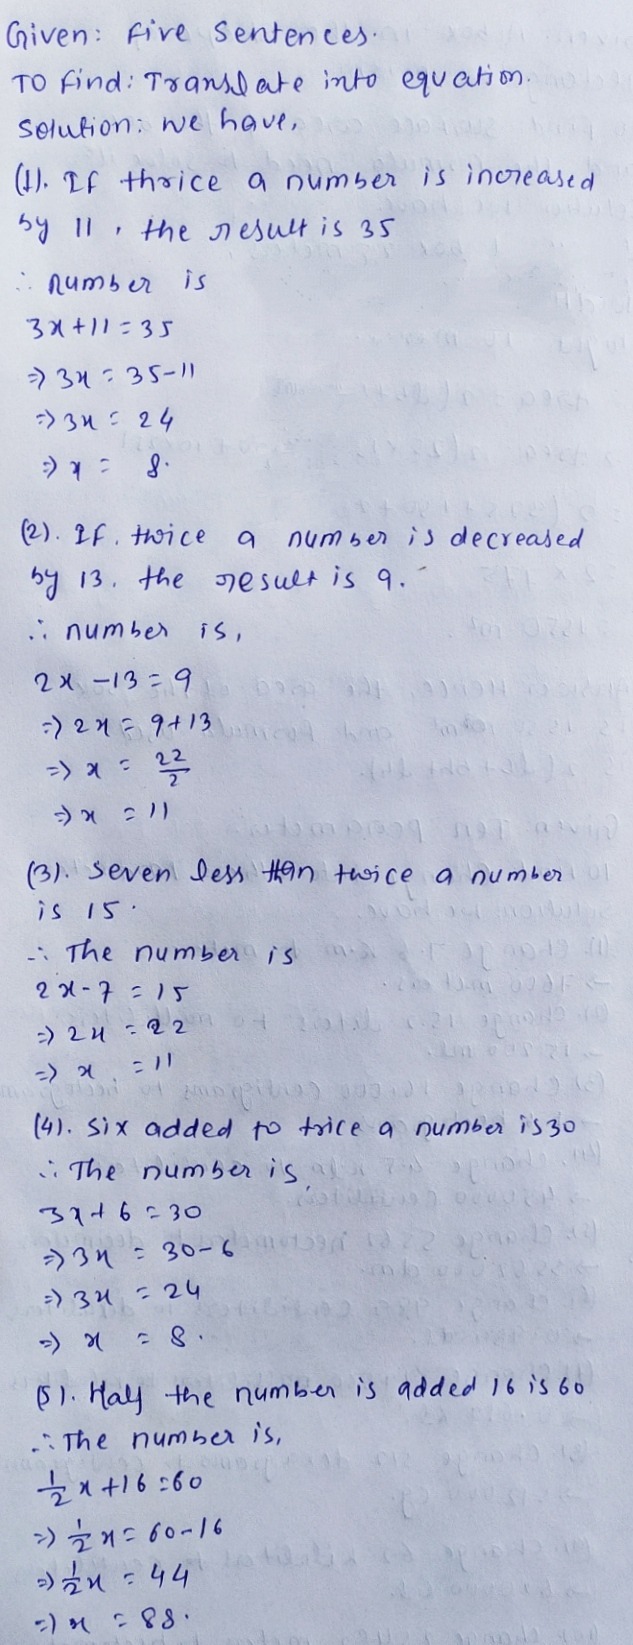 Given: Five Sentences.
To find: Translate into equation.
Solution: we have,
(1). If thrice a number is increased
by 11, the result is 35
∴ number is
3x+11=35
⇒ 3x = 35-11
⇒ 3x = 24
⇒ x = 8.
(2). If, twice a number is decreased
by 13. the result is 9.
∴ number is,
2x -13=9
⇒ 2x = 9+13
⇒ x = 22/2
⇒ x = 11
(3). Seven less than twice a number
is 15.
∴ The number is
2x-7 = 15
⇒ 2x = 22
⇒ x = 11
(4). Six added to trice a number is 30
∴ The number is,
3x+6=30
⇒ 3x = 30-6
⇒ 3x = 24
⇒ x = 8.
(5). Half the number is added 16 is 60
∴ The number is,
1/2 x +16=60
⇒ 1/2 x = 60-16
⇒ 1/2 x = 44
⇒ x = 88.